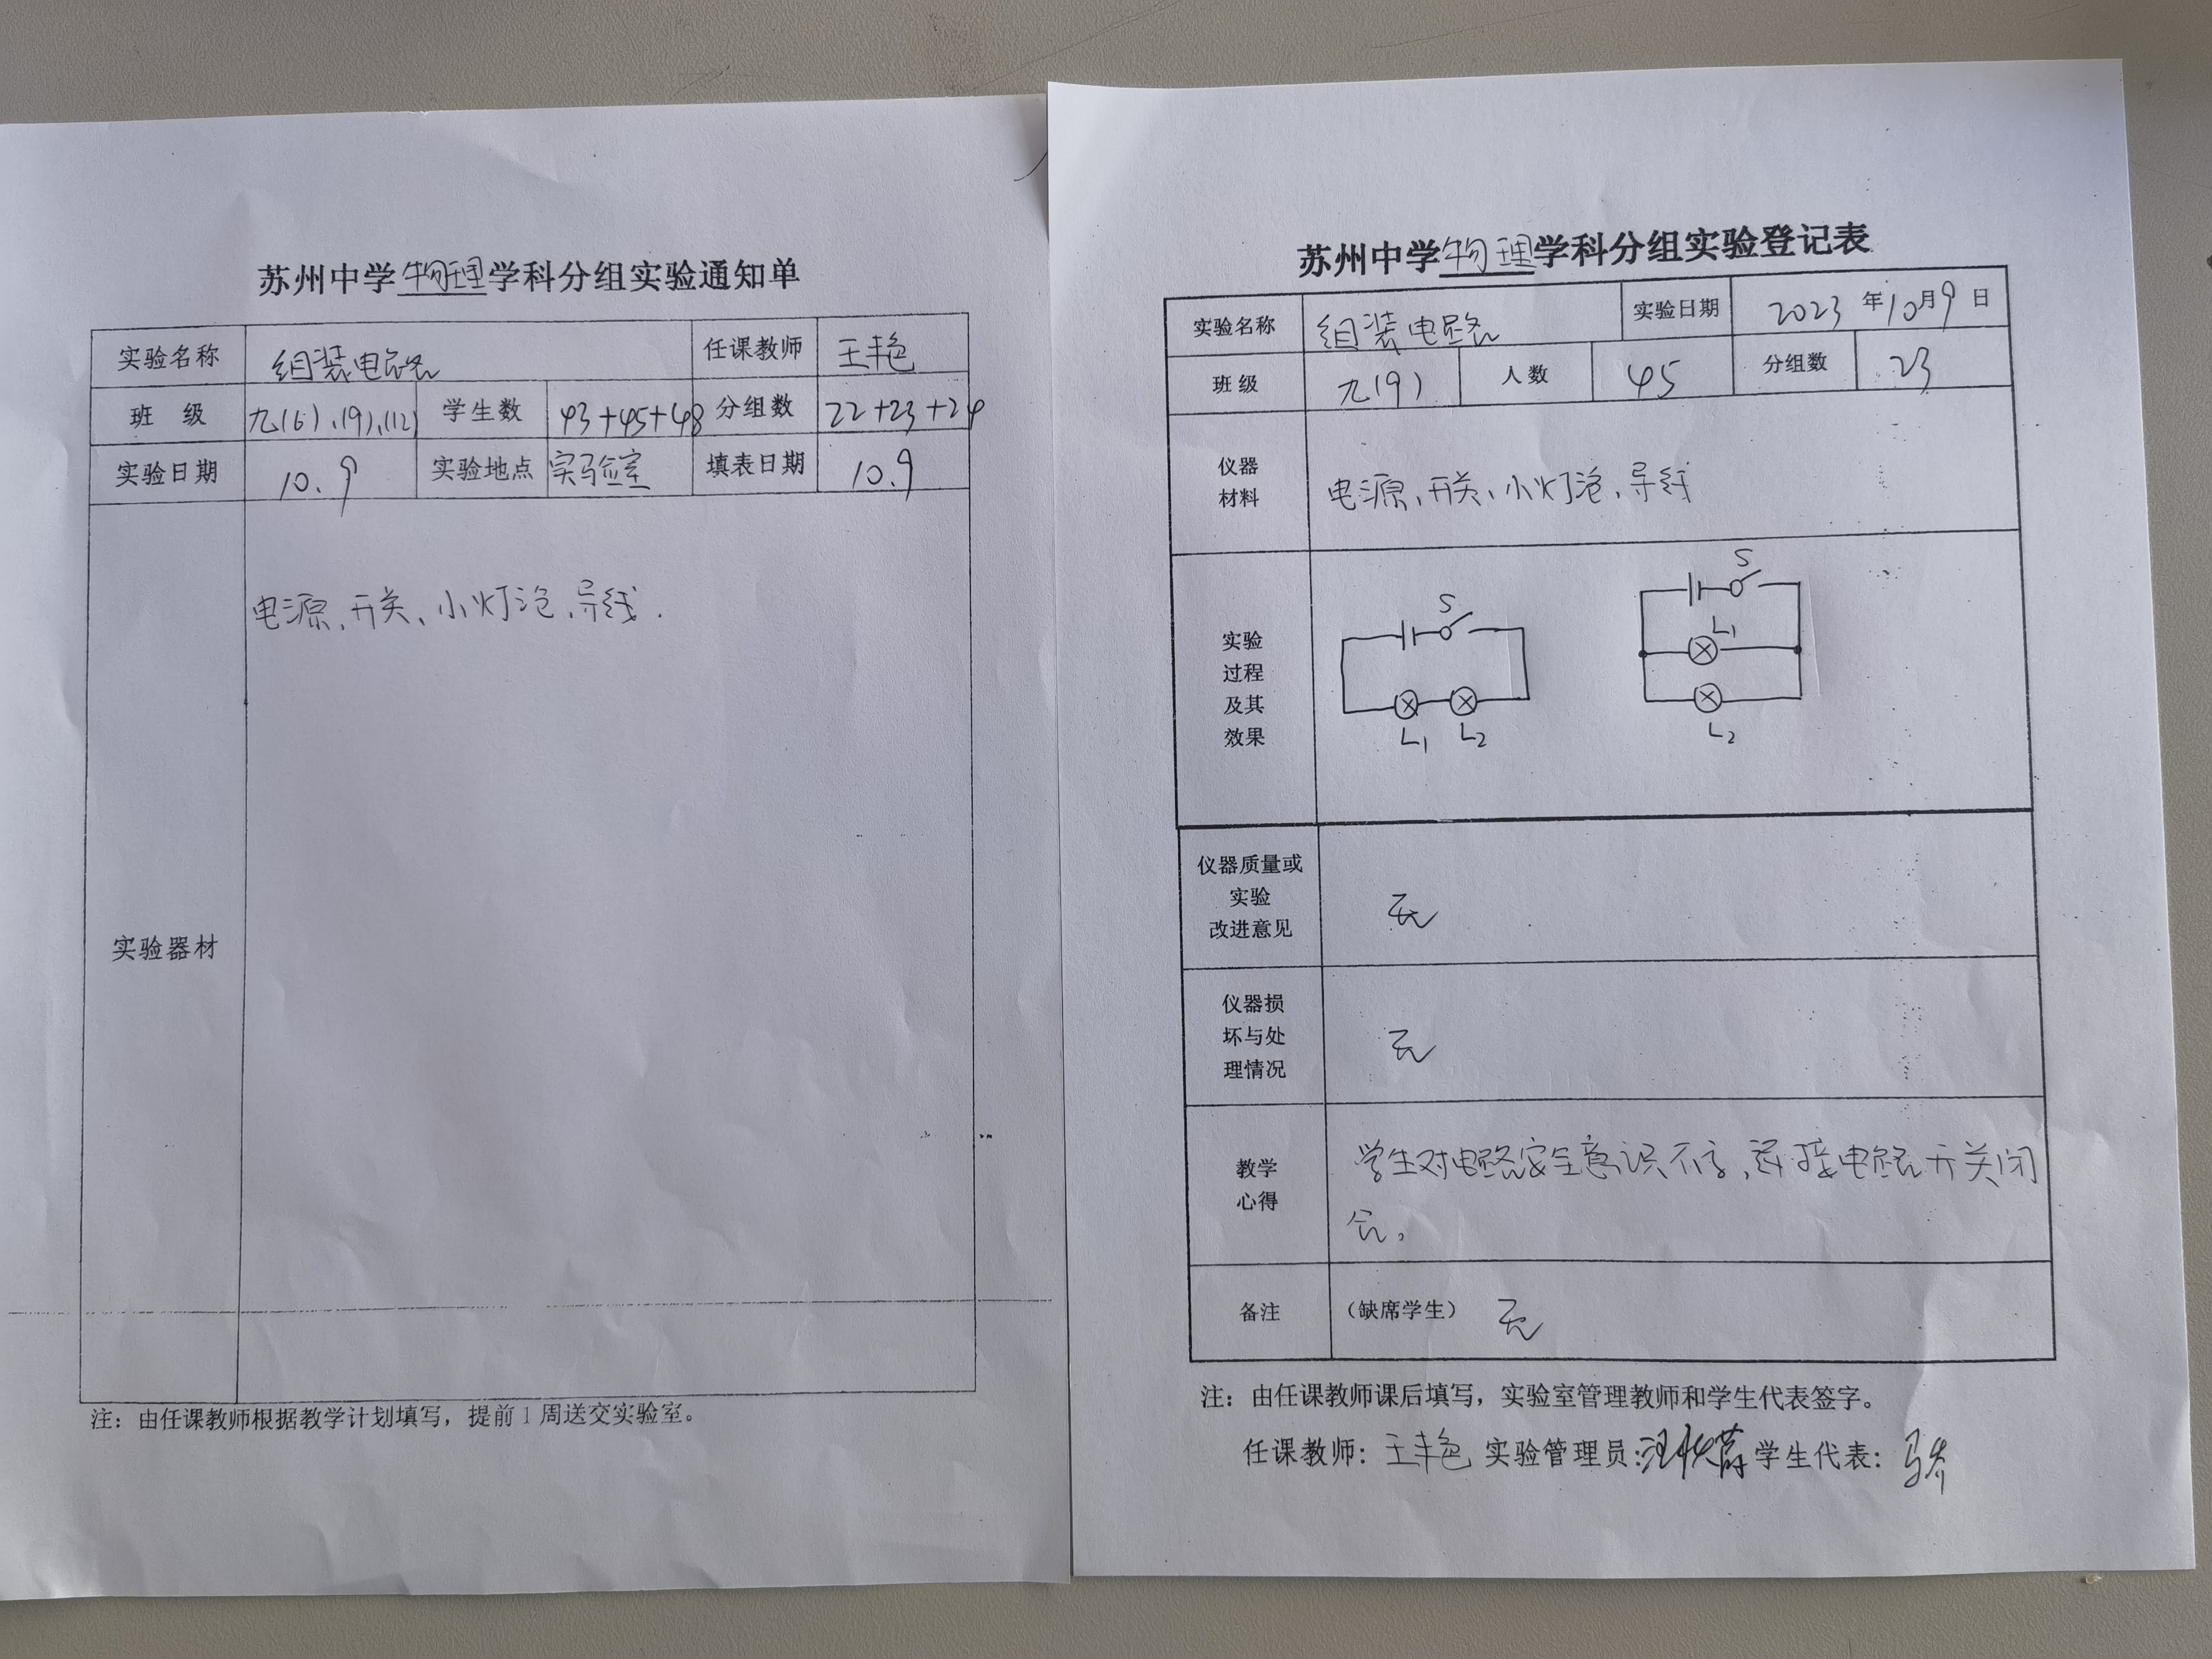 苏州中学物理学科分组实验通知单
实验名称 组装电路 任课教师 王丰色
班 级 九(6)、(9)、(12) 学生数 43+45+48 分组数 22+23+24
实验日期 10.9 实验地点 实验室 填表日期 10.9
电源、开关、小灯泡、导线.
实验器材
注：由任课教师根据教学计划填写，提前1周送交实验室。
苏州中学物理学科分组实验登记表
实验名称 组装电路 实验日期 2023年10月9日
班 级 九(9) 人数 45 分组数 23
仪器
材料
电源、开关、小灯泡、导线
实验
过程
及其
效果
S
L1 L2
S
L1
L2
仪器质量或
实验
改进意见
无
仪器损
坏与处
理情况
无
教学
心得
学生对电路安全意识不 连接电路开关闭
合。
备注 （缺席学生） 无
注：由任课教师课后填写，实验室管理教师和学生代表签字。
任课教师：王丰色 实验管理员： 学生代表：